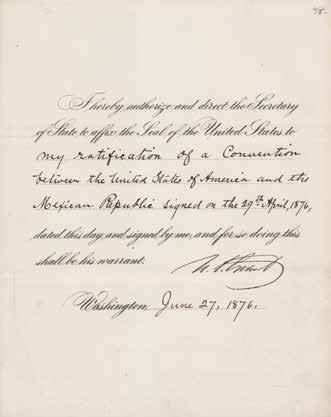 78-
I hereby authorize and direct the Secretary
of State to affix the Seal of the United States to
my ratification of a Convention
between the United States of America and the
Mexican Republic signed on the 29th April, 1876,
dated this day, and signed by me, and for so doing this
shall be his warrant.
U. S. Grant
Washington, June 27, 1876.